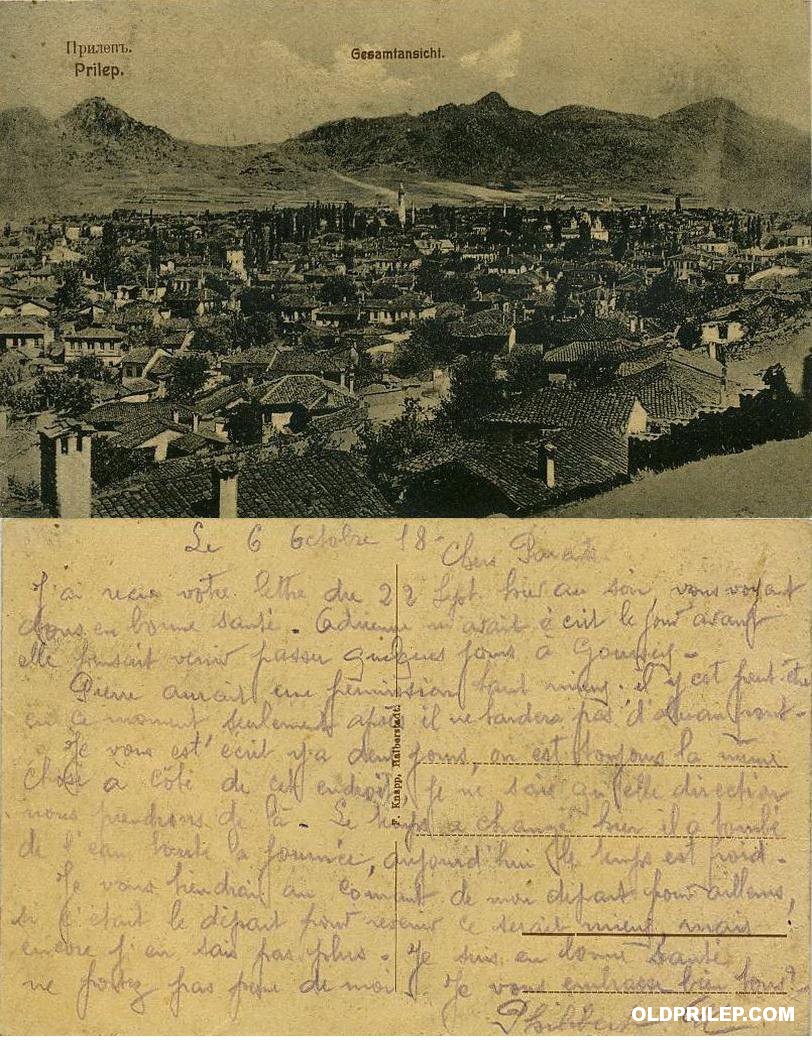 Прилепъ.
Prilep.
Gesamtansicht.
Le 6 Octobre 18
Chers Parents
J'ai reçu votre lettre du 22 Sept. hier au soir, vous voyant
tous en bonne santé. Adrienne m'avait écrit le jour avant
elle pensait venir passer quelques jours à
Pierre aurait une permission tant mieux. il y est peut-être
en ce moment seulement après il ne tardera pas d'aller au front.
Je vous est écrit y'a deux jours, on est toujours la même
chose à côté de cet endroit, Je ne sais qu'elle direction
nous prendrons de là. Le temps a changé hier il a tombé
de l'eau toute la journée, aujourd'hui le temps est froid.
Je vous tiendrai au courant de moi depart pour ailleurs,
si c'était le départ pour revenir ce serait mieux, mais
encore j'en sais pas plus. Je suis en bonne santé
ne portez pas peine de moi. Je vous embrasse bien tous
Philibert
F. Knapp, Halberstadt.
OLDPRILEP.COM